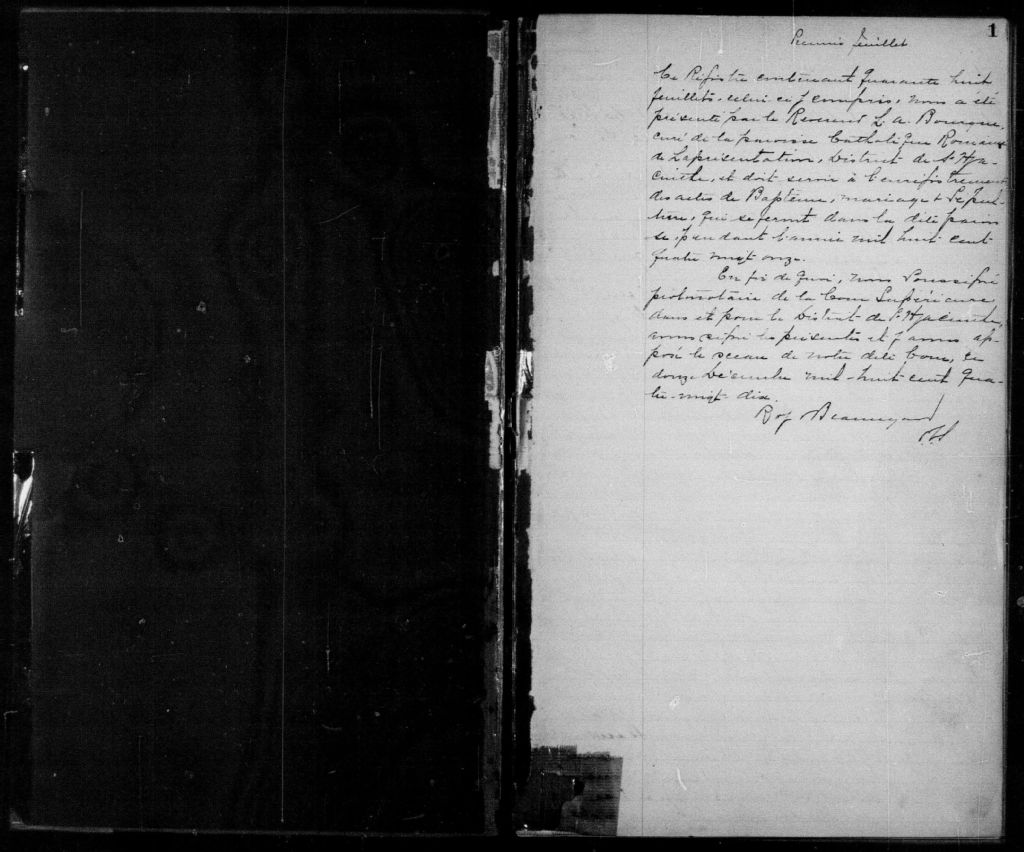 1
Premier feuillet
Ce Régistre contenant quarante huit
feuillets, celui-ci y compris, nous a été
présenté par le Révérend L. A. Bourque,
curé de la paroisse Catholique Romaine
de Laprésentation, District de St Hya-
cinthe, et doit servir à l'enrégistrement
des actes de Baptême, mariage & Sépul-
ture, qui se feront dans la dite parois
se, pendant l'année mil huit cent
quatre vingt onze.
En foi de quoi, nous Soussigné
protonotaire de la Cour Supérieure,
dans et pour le District de St Hyacinthe,
avons signé les présentes et y avons ap-
posé le sceau de notre dite Cour, ce
douze Décembre mil-huit cent qua-
tre-vingt dix.
Beauregard